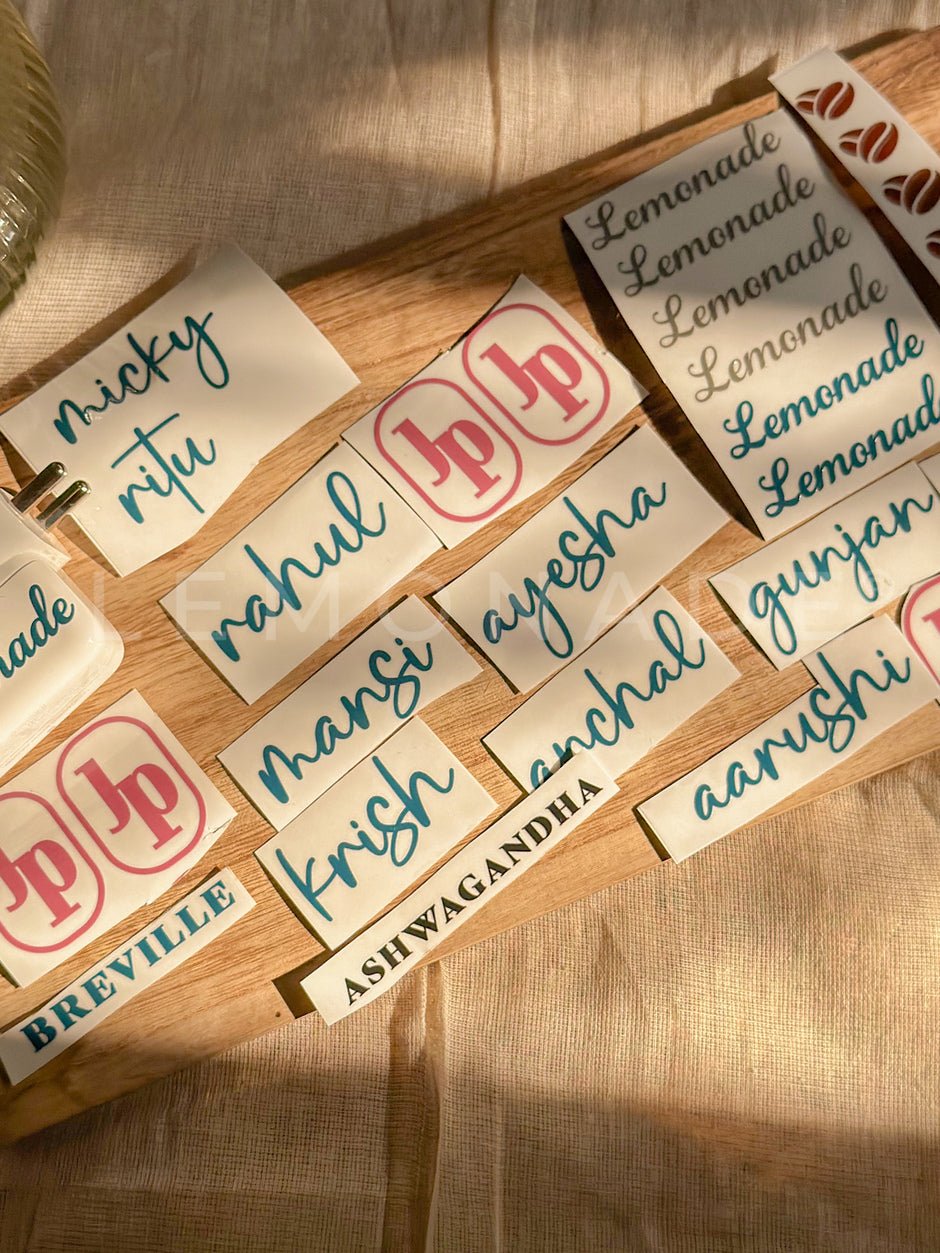 Lemonade
Lemonade
Lemonade
Lemonade
Lemonade
Lemonade
micky
ritu
JP
JP
rahul
ayesha
gunjan
LEMONADE
ade
mansi
anchal
aarushi
krish
JP
JP
ASHWAGANDHA
BREVILLE